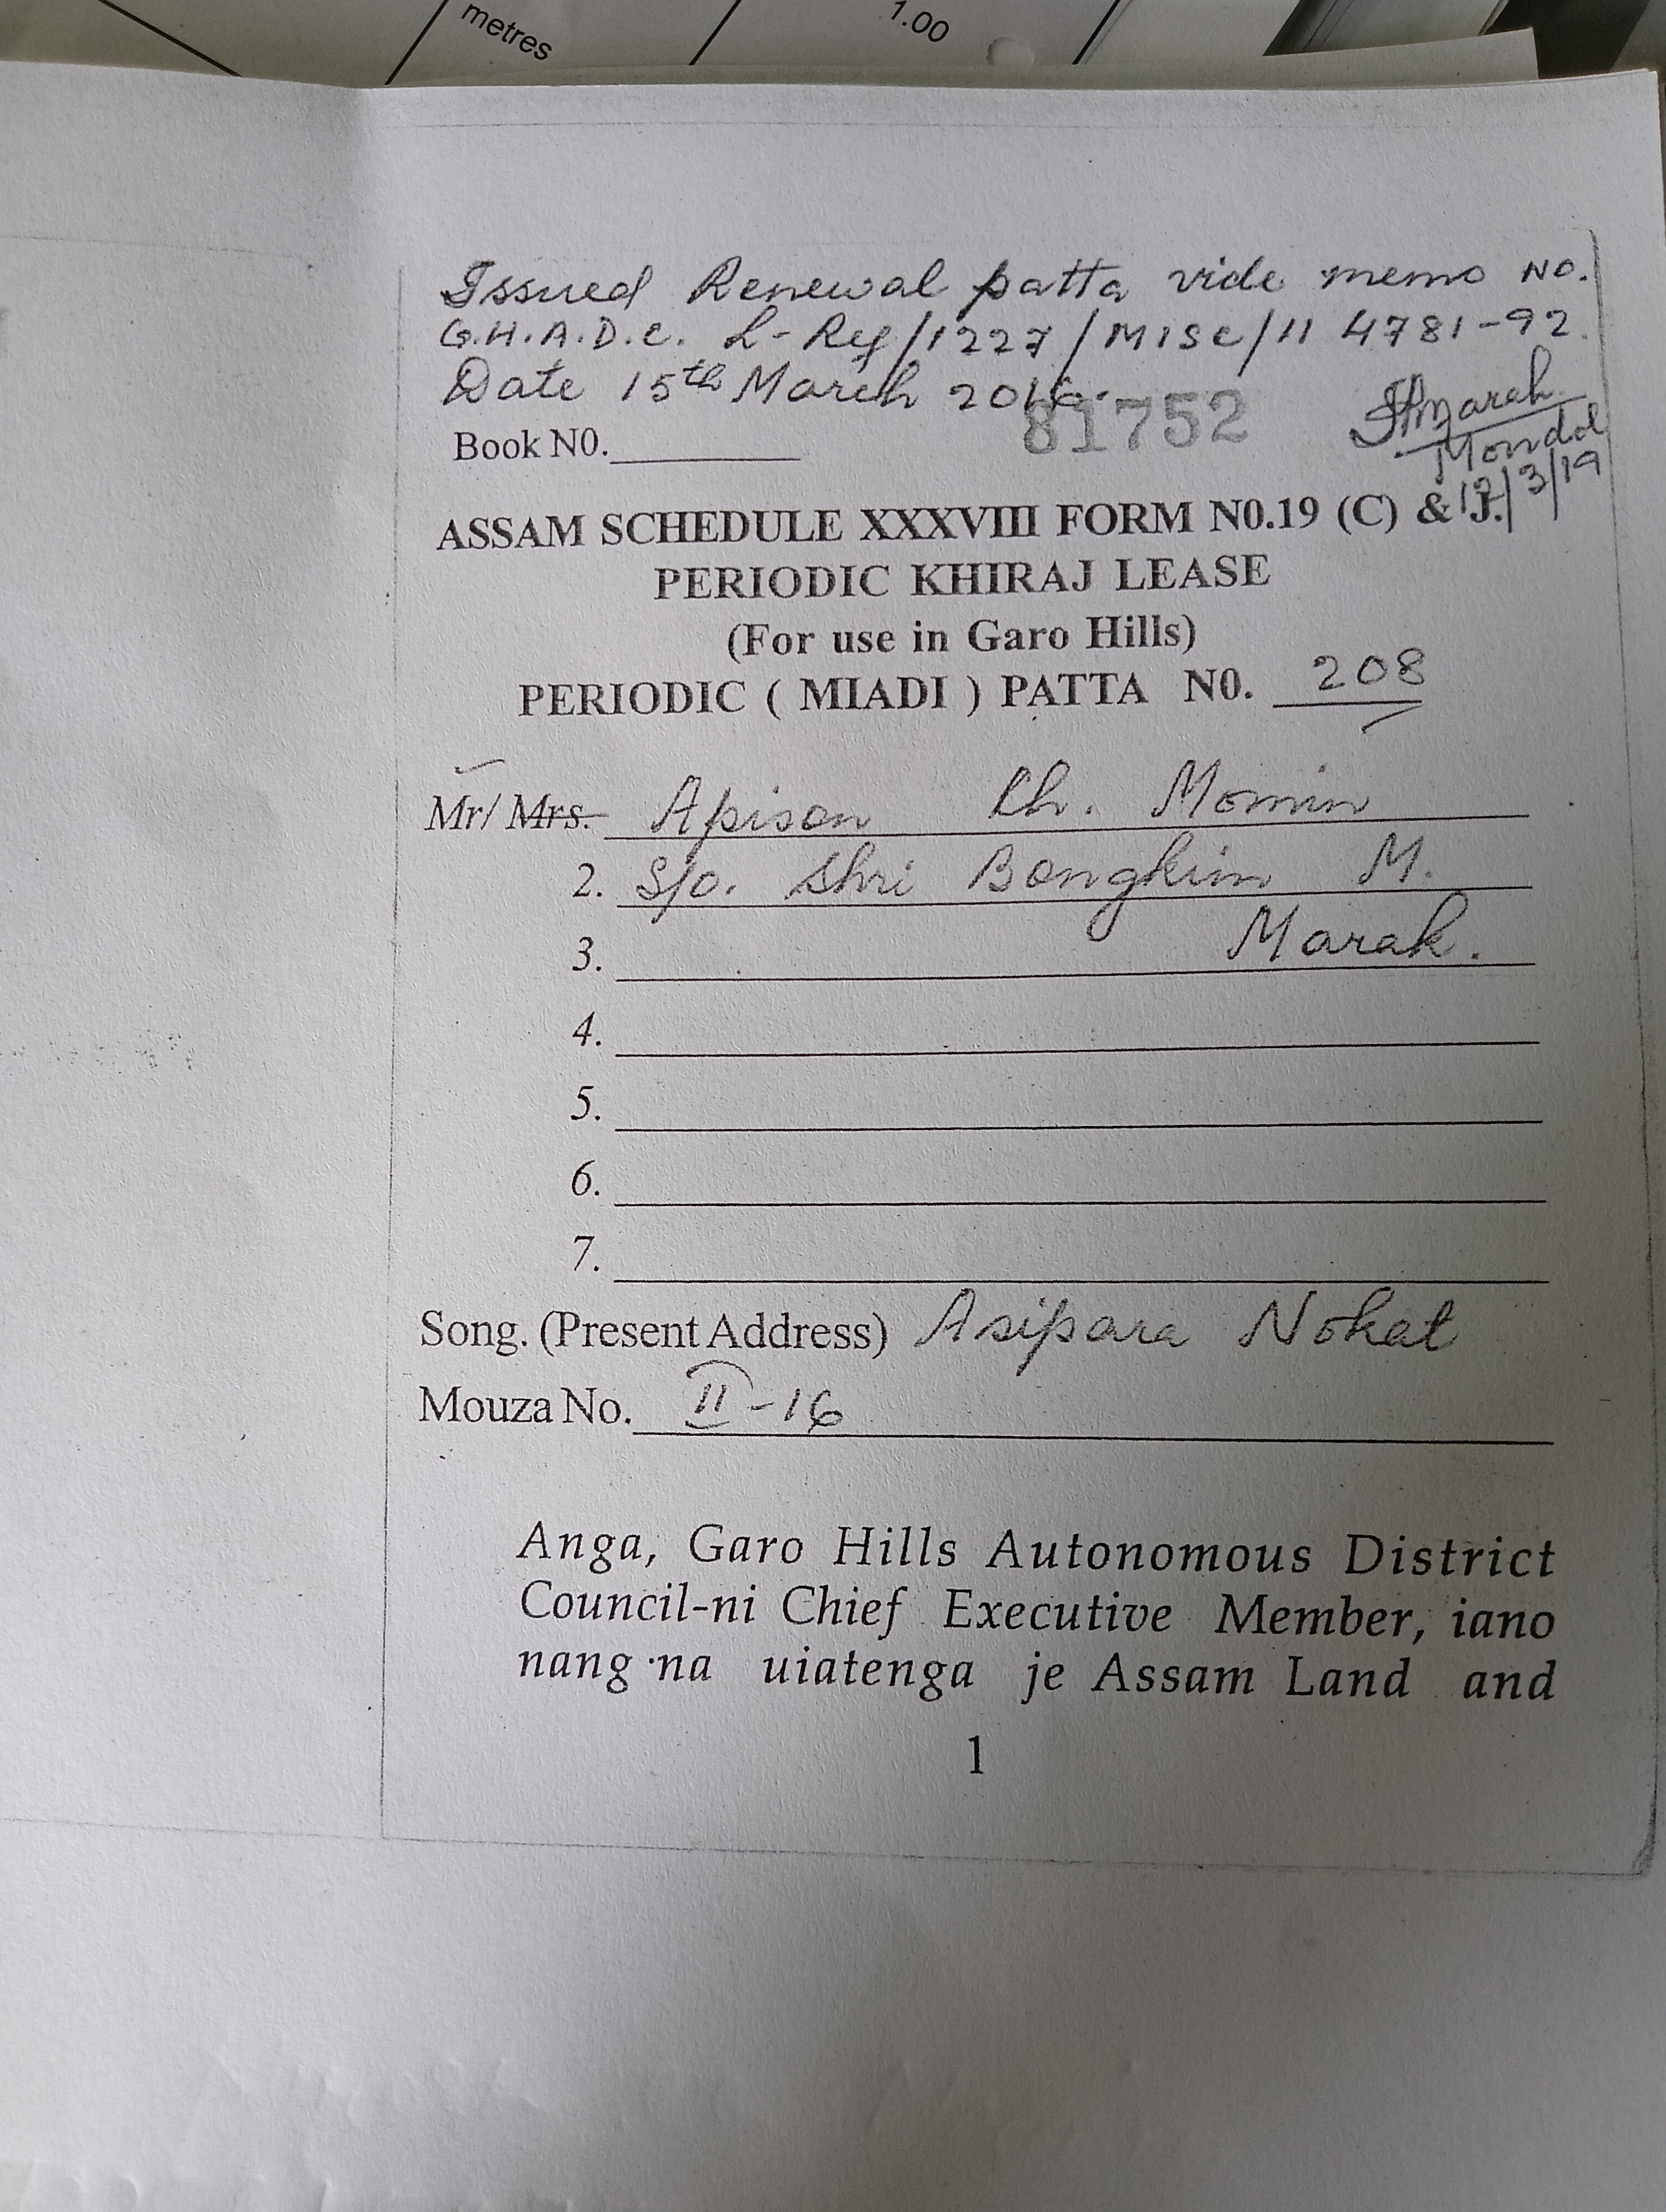 metres 1.00
Issued Renewal patta vide memo NO.
G.H.A.D.C. L-Reg/1227/MISC/II 4781-92.
Date 15th March 2016.
81752
Marak
Book N0.
Mondol
12/3/19
ASSAM SCHEDULE XXXVIII FORM N0.19 (C) & J.
PERIODIC KHIRAJ LEASE
(For use in Garo Hills)
PERIODIC ( MIADI ) PATTA N0. 208
Mr/ Mrs. Apison Ch. Momin
2. S/o. Shri Bongkim M.
3. Marak.
4.
5.
6.
7.
Song. (Present Address) Asipara Nokat
Mouza No. II-16
Anga, Garo Hills Autonomous District
Council-ni Chief Executive Member, iano
nang·na uiatenga je Assam Land and
1